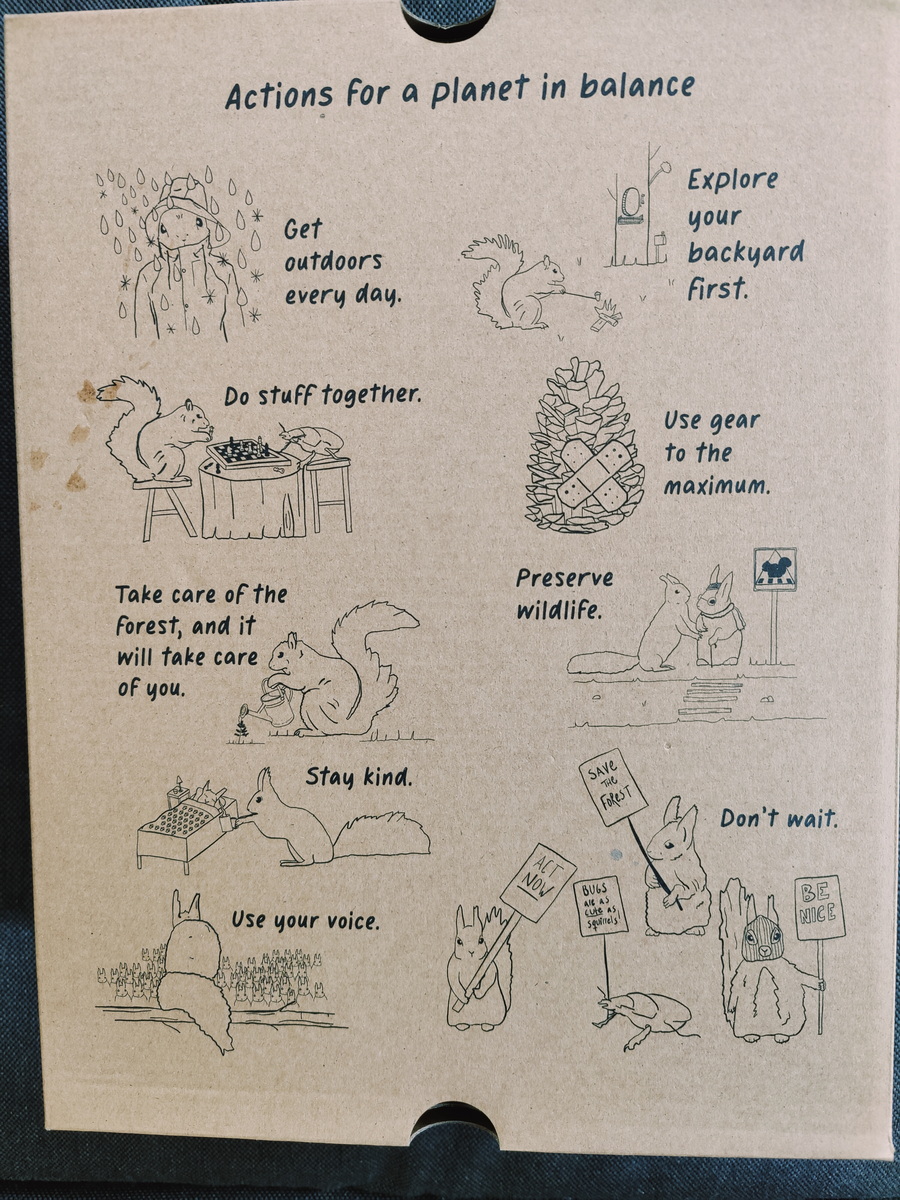 Actions for a planet in balance
Get
outdoors
every day.
Explore
your
backyard
first.
Do stuff together.
Use gear
to the
maximum.
Take care of the
forest, and it
will take care
of you.
Preserve
wildlife.
Stay kind.
Don't wait.
SAVE
THE
FOREST
ACT
NOW
BUGS
are as
cute as
squirrels!
BE
NICE
Use your voice.